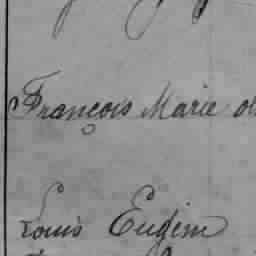 François Marie
Louis Eugène